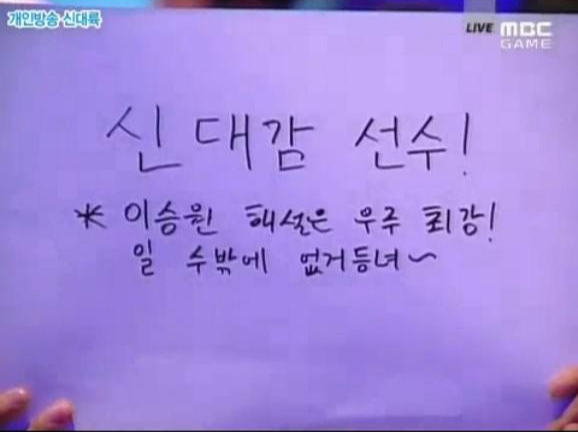 개인방송 신대륙
LIVE MBC
GAME
신대감 선수!
* 이승원 해설은 우주 최강!
일 수밖에 없거등녀~